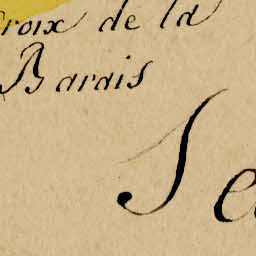 Croix de la
Barais
Se